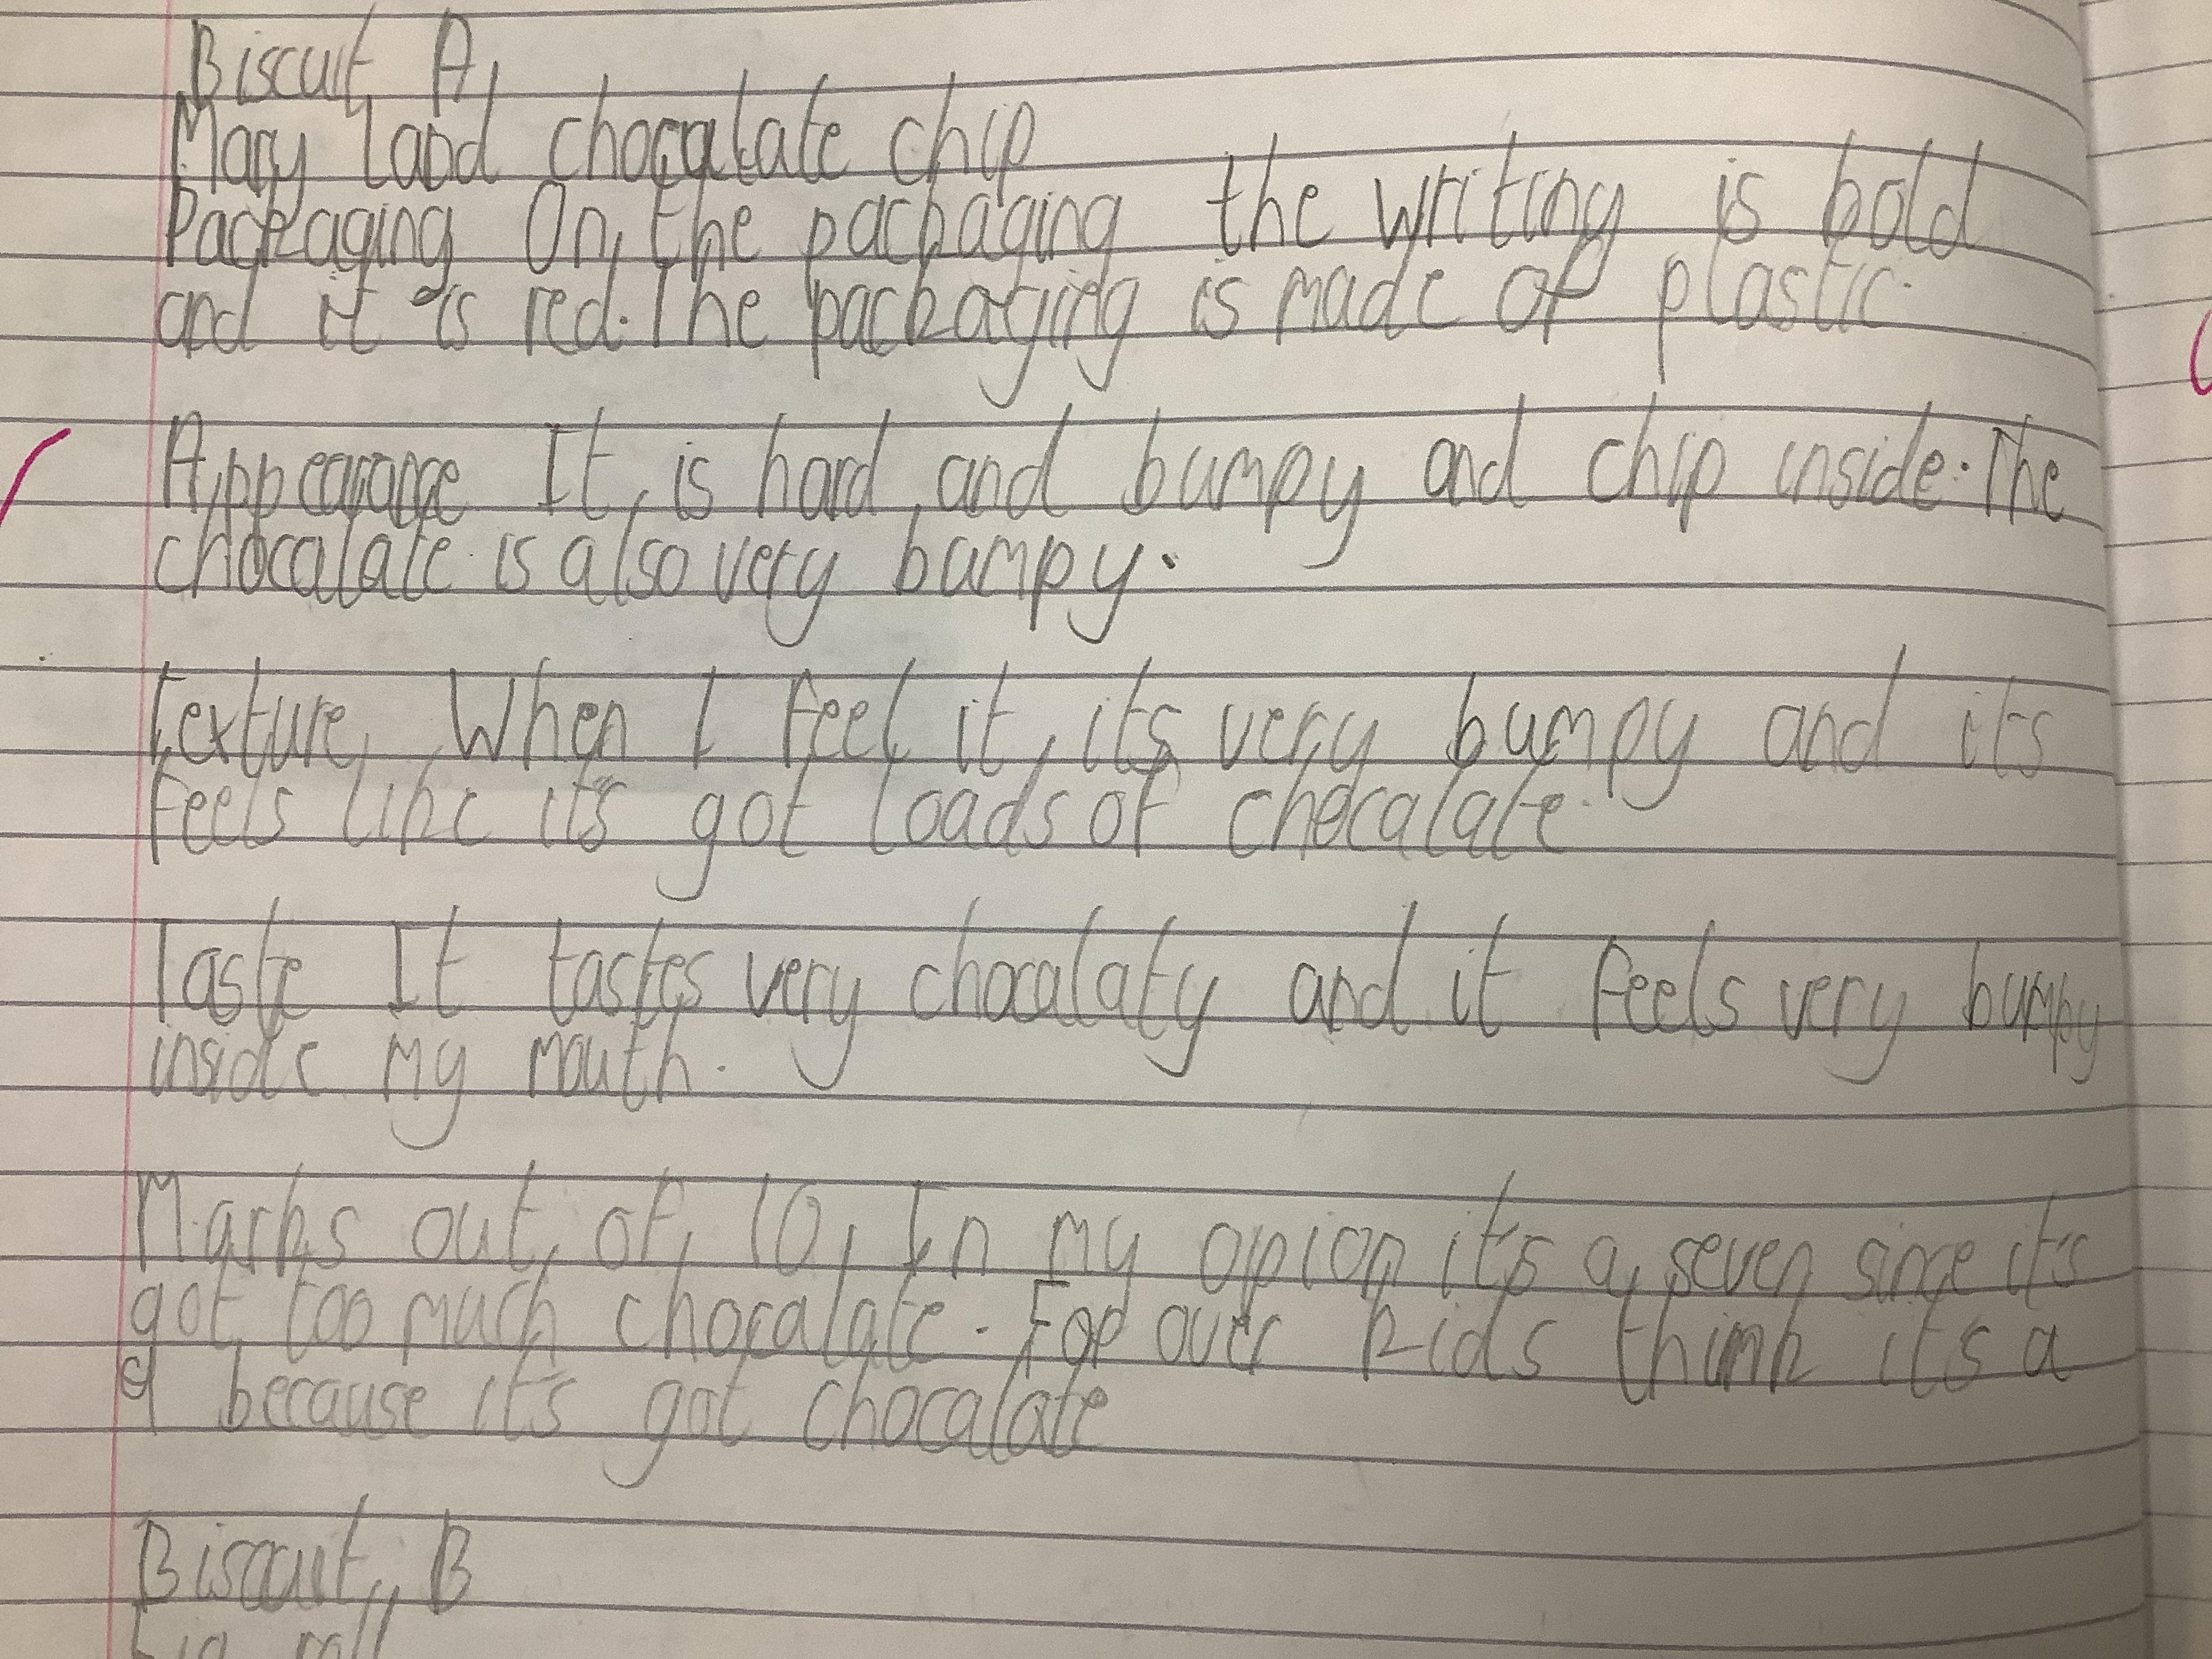 Biscuit A
Mary land chocalate chip
Packaging On the packaging the writing is bold
and it is red. The packaging is made of plastic.
Appearance It is hard and bumpy and chip inside. The
chocalate is also very bumpy.
texture When I feel it, its very bumpy and its
feels like it's got loads of chocalate.
Taste It tastes very chocalaty and it feels very bumpy
inside my mouth.
Marks out of 10 In my opion it's a seven since it's
got too much chocalate. For over kids think it's a
9 because it's got chocalate
Biscuit B
Fig roll